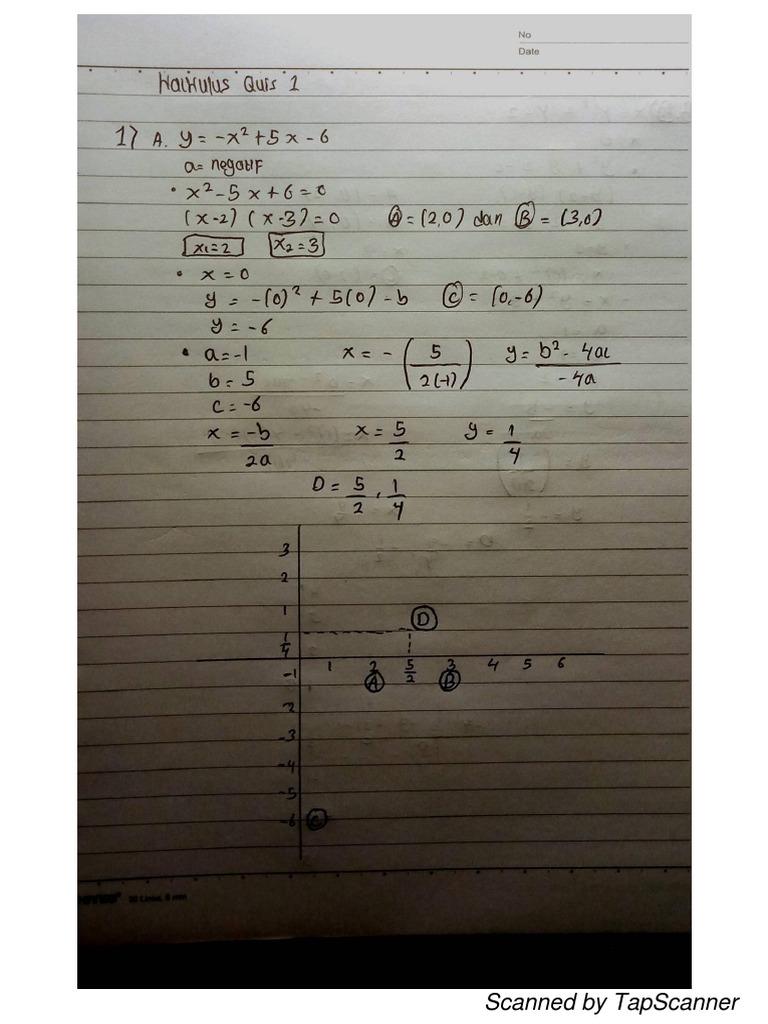 No
Date
Kalkulus Quis 1
1) A. y = -x² + 5x - 6
a = negatif
• x² - 5x + 6 = 0
(x-2) (x-3) = 0 Ⓐ = (2,0) dan Ⓑ = (3,0)
x₁ = 2 x₂ = 3
• x = 0
y = -(0)² + 5(0) - 6 Ⓒ = (0,-6)
y = -6
• a = -1 x = - (5 / 2(-1)) y = b² - 4ac / -4a
b = 5
c = -6
x = -b / 2a x = 5 / 2 y = 1 / 4
D = 5/2 , 1/4
3
2
1
Ⓓ
1/4
1 2 5/2 3 4 5 6
-1 Ⓐ Ⓑ
-2
-3
-4
-5
-6 Ⓒ
30 Lines, 8 mm
Scanned by TapScanner